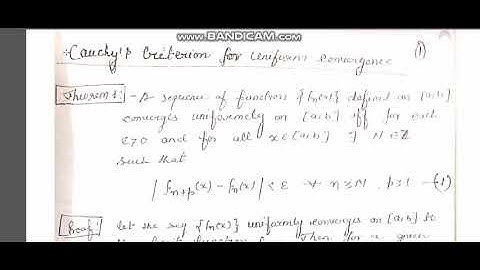 www.BANDICAM.com
Cauchy's Criterion for uniform convergence (1)
Theorem 1: - A sequence of functions {fn(x)} defined on [a,b]
converges uniformly on [a,b] iff for each
ε>0 and for all x∈[a,b] ∃ N∈Z
such that
|fn+p(x) - fn(x)| < ε ∀ n≥N, p≥1 -(1)
Proof let the seq {fn(x)} uniformly converges on [a,b] to
function Then for a given